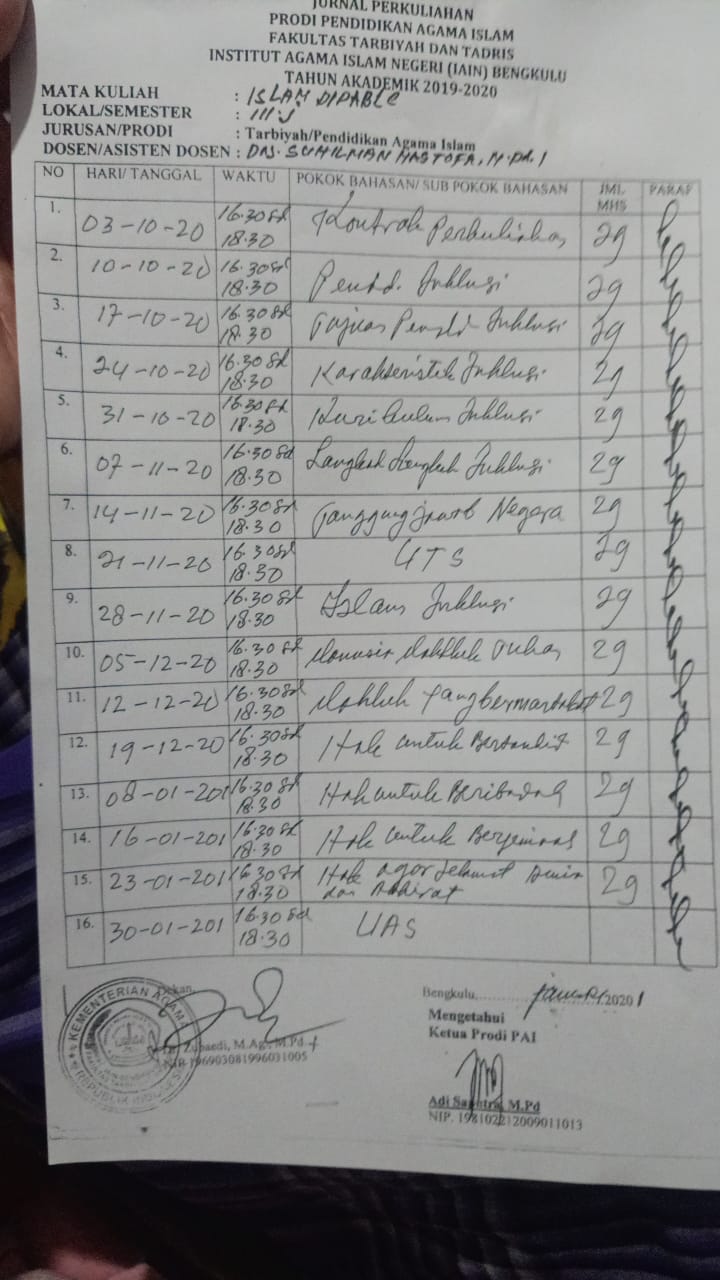 JURNAL PERKULIAHAN
PRODI PENDIDIKAN AGAMA ISLAM
FAKULTAS TARBIYAH DAN TADRIS
INSTITUT AGAMA ISLAM NEGERI (IAIN) BENGKULU
TAHUN AKADEMIK 2019-2020
MATA KULIAH : ISLAM DIPABLE
LOKAL/SEMESTER : III J
JURUSAN/PRODI : Tarbiyah/Pendidikan Agama Islam
DOSEN/ASISTEN DOSEN : Drs. SUHILMAN MASTOFA, M.Pd.I
NO HARI/ TANGGAL WAKTU POKOK BAHASAN/ SUB POKOK BAHASAN JML MHS PARAF
1. 03-10-20 16.30 Sd 18.30 Kontrak Perkuliahan 29
2. 10-10-20 16.30 Sd 18.30 Pendd. Inklusi 29
3. 17-10-20 16.30 Sd 18.30 Tujuan Pendd Inklusi 29
4. 24-10-20 16.30 Sd 18.30 Karakteristik Inklusi 29
5. 31-10-20 16.30 Sd 18.30 Kurikulum Inklusi 29
6. 07-11-20 16.30 Sd 18.30 Langkah Langkah Inklusi 29
7. 14-11-20 16.30 Sd 18.30 Tanggung Jawab Negara 29
8. 21-11-20 16.30 Sd 18.30 UTS 29
9. 28-11-20 16.30 Sd 18.30 Islam Inklusi 29
10. 05-12-20 16.30 Sd 18.30 Manusia Makhluk Tuhan 29
11. 12-12-20 16.30 Sd 18.30 Makluk yang bermartabat 29
12. 19-12-20 16.30 Sd 18.30 Hak untuk 29
13. 08-01-201 16.30 Sd 18.30 Hak untuk Beribadah 29
14. 16-01-201 16.30 Sd 18.30 Hak untuk 29
15. 23-01-201 16.30 Sd 18.30 Hak agar Selamat Dunia dan Akhirat 29
16. 30-01-201 16.30 Sd 18.30 UAS
Dekan,
Zubaedi, M.Ag., M.Pd
NIP 196903081996031005
KEMENTERIAN AGAMA
REPUBLIK INDONESIA
Bengkulu,........ Januari 20201
Mengetahui
Ketua Prodi PAI
Adi Saputra, M.Pd
NIP. 198102212009011013